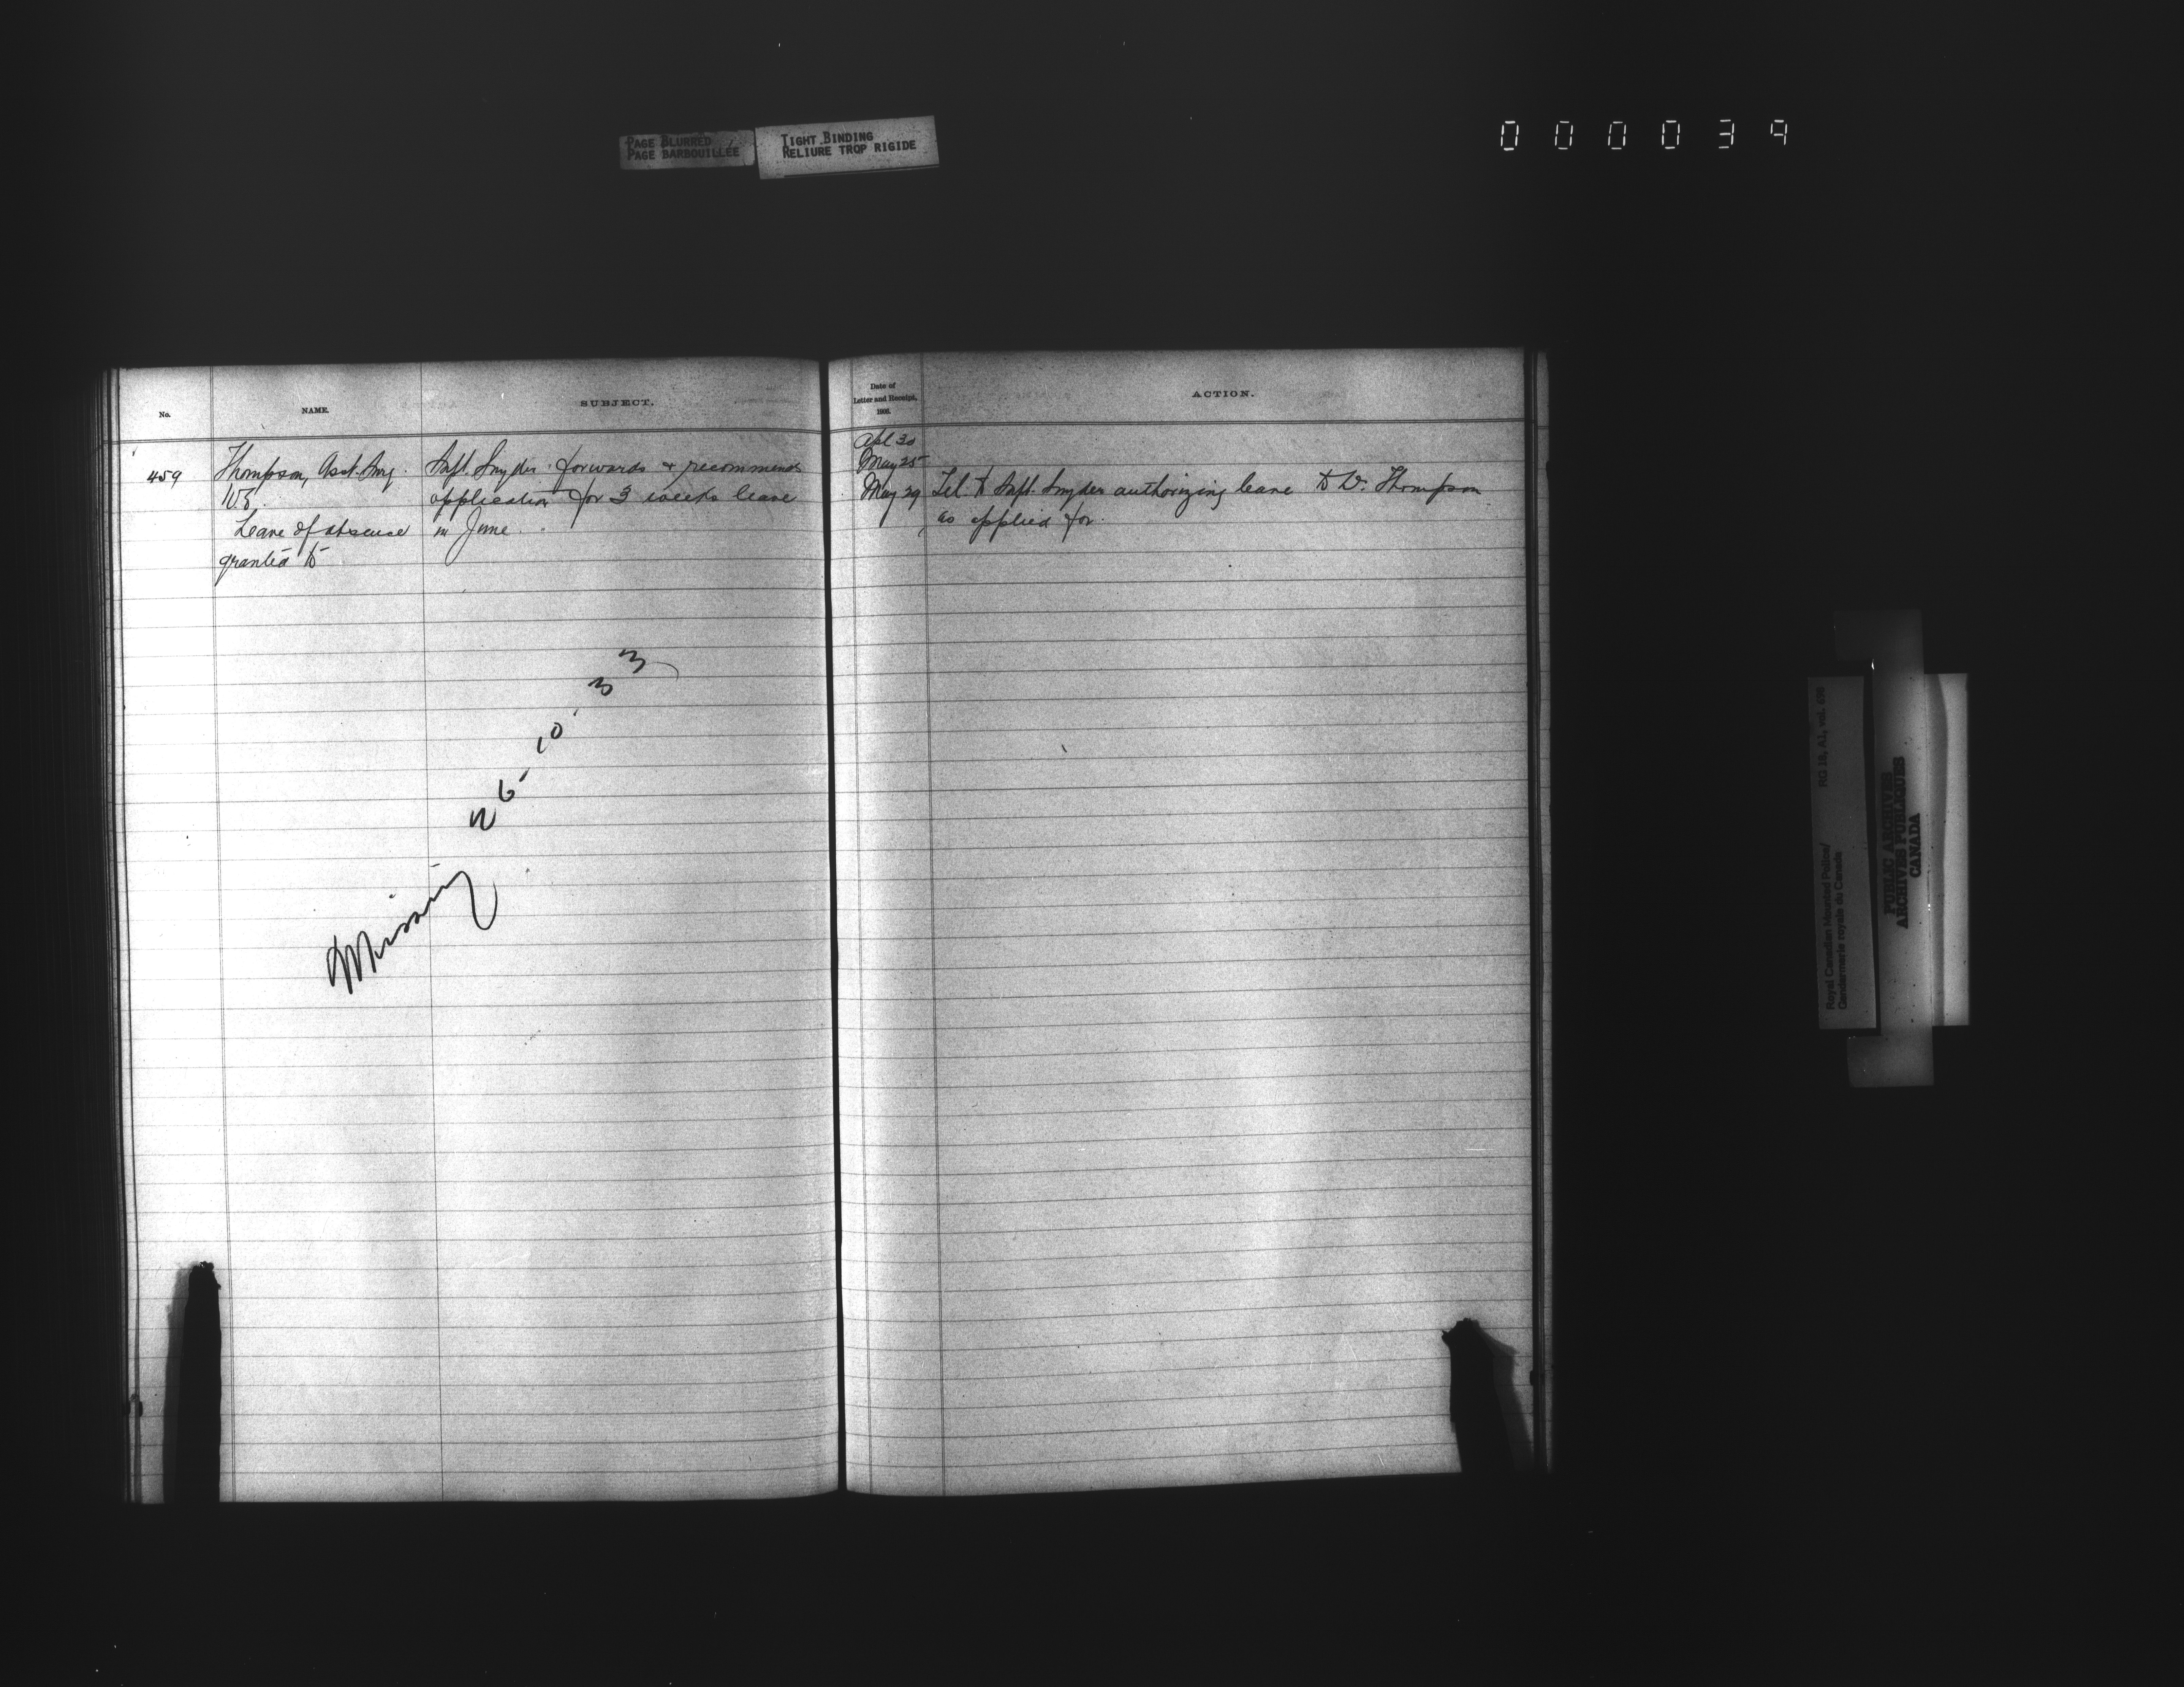 PAGE BLURRED
PAGE BARBOUILLÉE
TIGHT BINDING
RELIURE TROP RIGIDE
000039
No.
NAME.
SUBJECT.
Date of
Letter and Receipt,
1906.
ACTION.
459
Thompson, Asst. Surg.
W.E.
Leave of absence
granted to
Supt. Snyder forwards & recommends
application for 3 weeks leave
in June.
Apl 30
May 25
May 29 Tel. to Supt. Snyder authorizing leave to Dr. Thompson
as applied for.
Missing 26-10-33
Royal Canadian Mounted Police/ RG 18, A1, vol.
Gendarmerie royale du Canada
PUBLIC ARCHIVES
ARCHIVES PUBLIQUES
CANADA